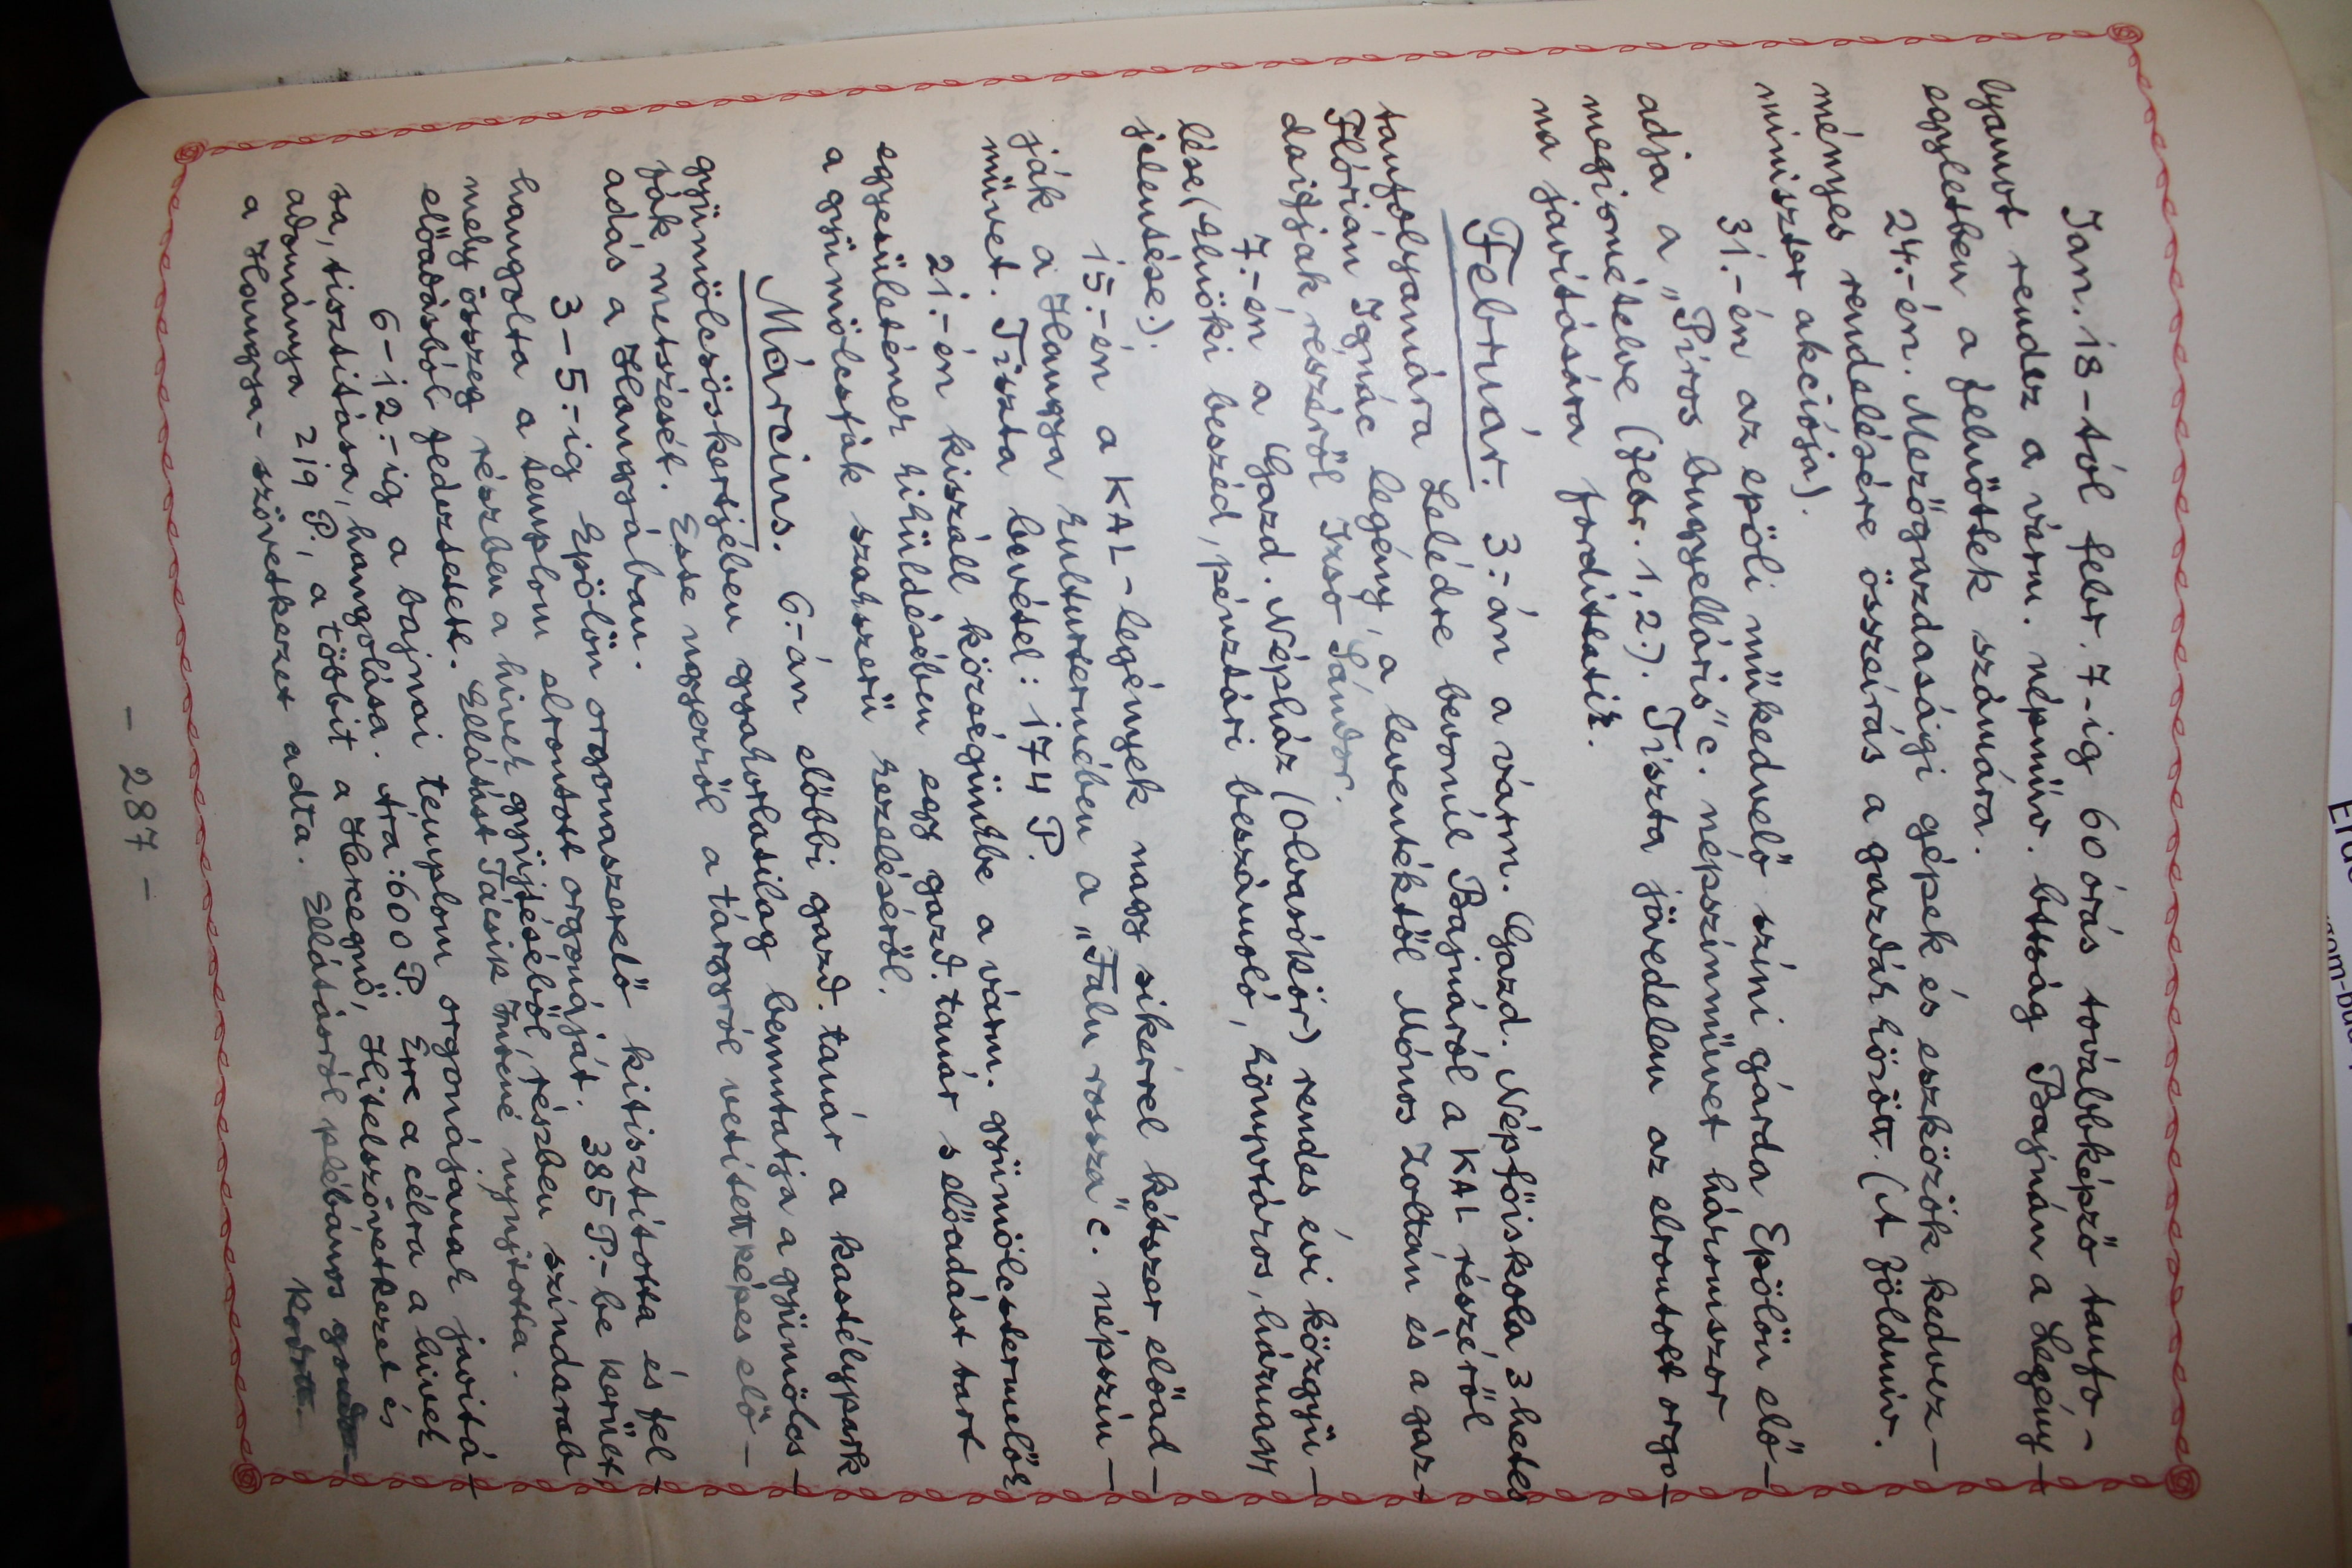 Jan. 18-tól febr. 7-ig 60 órás továbbképző tanfo-
lyamot rendez a várm. népműv. bttság Bajnán a Legény-
egyletben a felnőttek számára.
24.-én. Mezőgazdasági gépek és eszközök kedvez-
ményes rendelésére összeírás a gazdák között. (A földműv.
miniszter akciója).
31.-én az epöli műkedvelő színi gárda Epölön elő-
adja a „Piros bugyelláris" c. népszínművet háromszor
megismételve (febr. 1, 2.). Tiszta jövedelem az elrontott orgo-
na javítására fordíttatik.
Február. 3.-án a várm. Gazd. Népfőiskola 3 hetes
tanfolyamára Lelédre bevonúl Bajnáról a KAL részéről
Flórián Ignác legény, a leventéktől Mónos Zoltán és a gaz-
daifjak részéről Izsó Sándor.
7.-én a Gazd. Népház (Olvasókör) rendes évi közgyű-
lése, (Elnöki beszéd, pénztári beszámoló, könyvtáros, háznagy
jelentése.).
15.-én a KAL-legények nagy sikerrel kétszer előad-
ják a Hangya kulturtermében a „Falu rossza" c. népszín-
művet. Tiszta bevétel: 174 P.
21.-én kiszáll községünkbe a várm. gyümölcstermelők
egyesületének kiküldésében egy gazd. tanár s előadást tart
a gyümölcsfák szakszerü kezeléséről.
Március. 6.-án előbbi gazd. tanár a kastélypark
gyümölcsöskertjében gyakorlatilag bemutatja a gyümölcs-
fák metszését. Este ugyenről a tárgyról vetítettképes elő-
adás a Hangyában.
3-5.-ig Epölön orgonaszerelő kitisztította és fel-
hangolta a templom elrontott orgonáját. 385 P.-be került,
mely összeg részben a hivek gyüjtéséből, részben színdarab
előadásból fedeztetett. Ellátást Tácsik Imréné nyujtotta.
6-12.-ig a bajnai templom orgonájának javitá-
sa, tisztitása, hangolása. Ára: 600 P. Erre a célra a hivek
adománya 219 P., a többit a Hercegnő, Hitelszövetkezet és
a Hangya-szövetkezet adta. Ellátásról plébános gondos-
kodott.
- 287 -